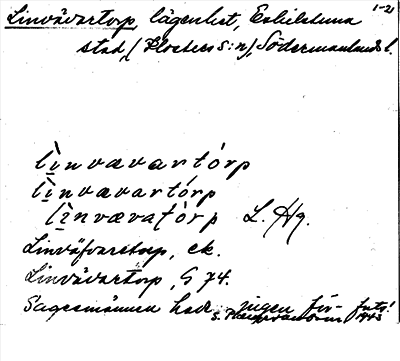 1-21
Linvävartorp, lägenhet, Eskilstuna
stad, (Klosters s:n), Södermanlands l.
lìnvavartórp
lìnvævartórp
lìnvævatòrp L. Hg.
Linväfvaretorp, ek.
Linvävartorp, G 74.
Sagesmännen hade ingen för-
1943